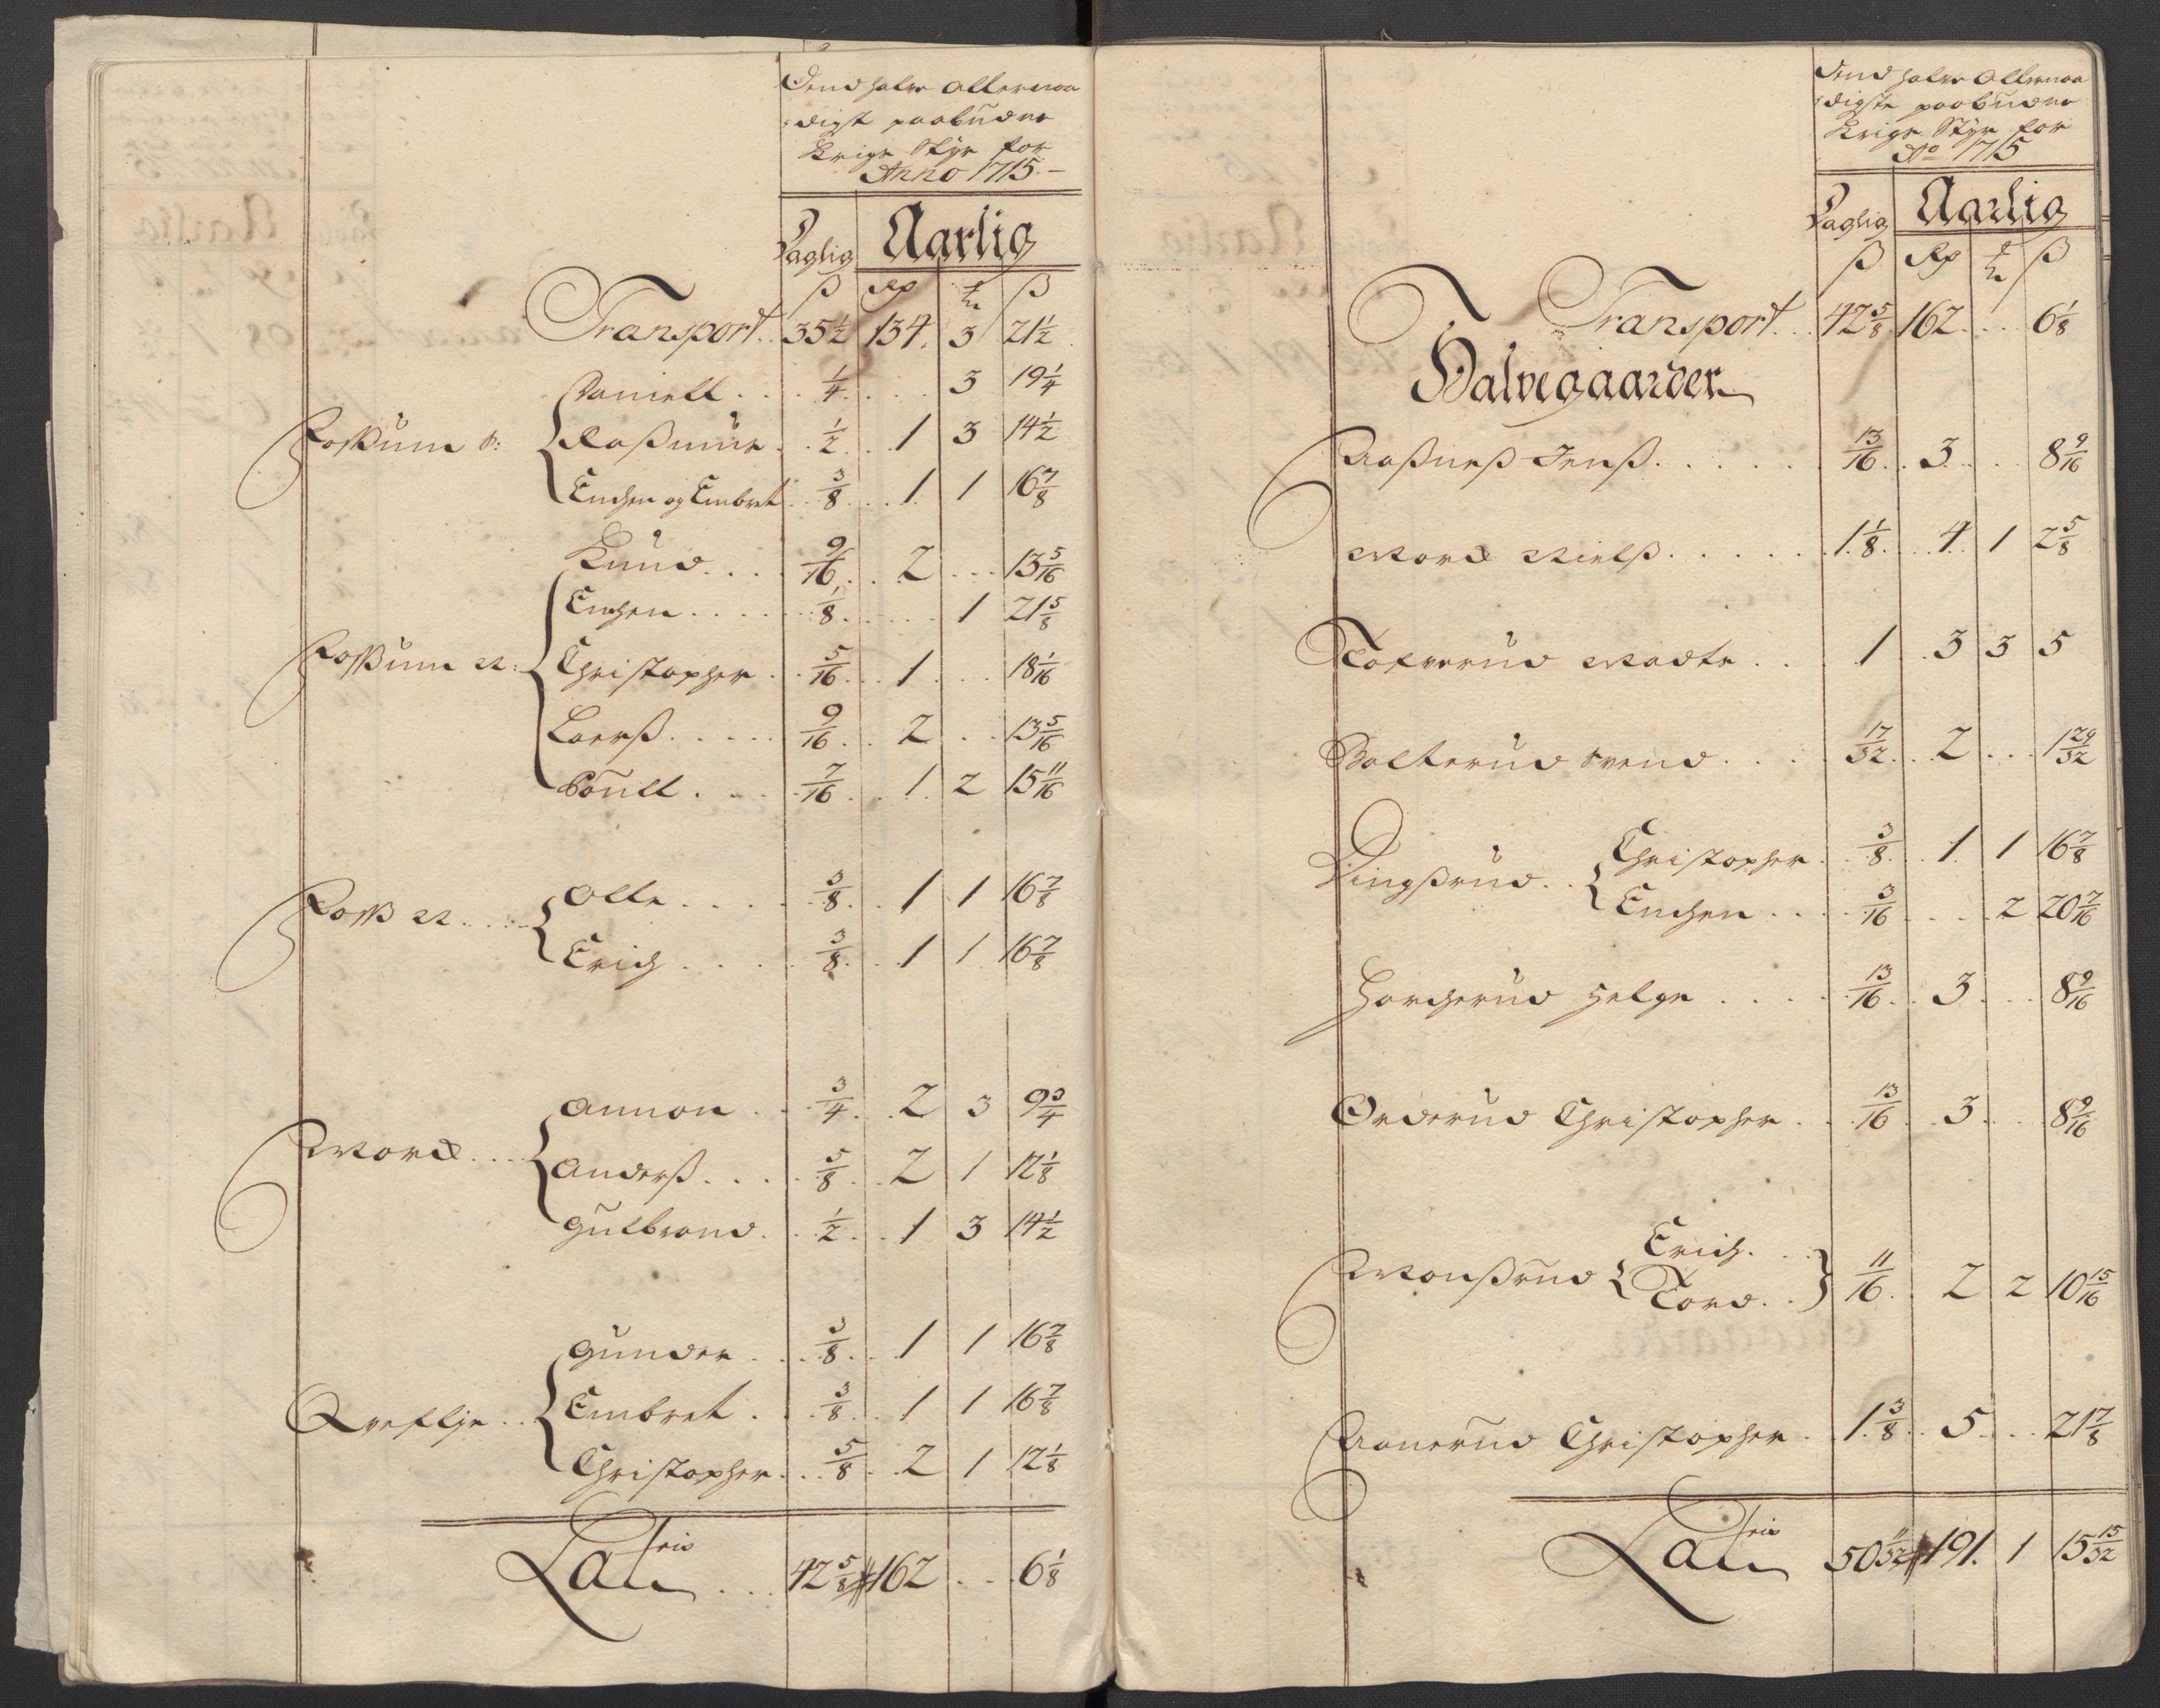 Dend halve allernaa
digst paabudne
Krigs Styr for
Anno 1715.
Daglig Aarlig
ß Rp ß
Transport 35½ 134 3 21½
Daniell ¼ 3 19¼
Fossum S: Rasmus ½ 1 3 14½
Enchen og Embret 3/8 1 1 16 7/8
Knud 9/16 2 13 5/16
Enchen 1/8 1 21 5/8
Fossum N: Christopher 5/16 1 18 1/16
Laerß 9/16 2 13 5/16
Poull 7/16 1 2 15 11/16
Foss N Olle 3/8 1 1 16 7/8
Erich 3/8 1 1 16 7/8
Amon ¾ 2 3 9¾
Mord Anderß 5/8 2 1 12 1/8
Gulbrand ½ 1 3 14½
Gunder 3/8 1 1 16 7/8
Embret 3/8 1 1 16 7/8
Christopher 5/8 2 1 12 1/8
Latris 42 5/8 162 6 1/8
Dend halve allernaa
digste paabudne
Krigs Styr for
Ao 1715
Daglig Aarlig
ß Rp ß
Transport 42 5/8 162 6 1/8
Halvegaarder
Jenß 13/16 3 8 9/16
Mord Nielß 1 1/8 4 1 2 5/8
1 3 3 5
Svend 17/32 2 1 29/32
Christopher 3/8 1 1 16 7/8
Enchen 3/16 2 20 7/16
Helge 13/16 3 8 9/16
Orderud Christopher 13/16 3 8 9/16
Erich
Monßrud Tord 11/16 2 2 10 15/16
Christopher 1 3/8 5 21 7/8
Latris 50 11/32 191 1 15 15/32